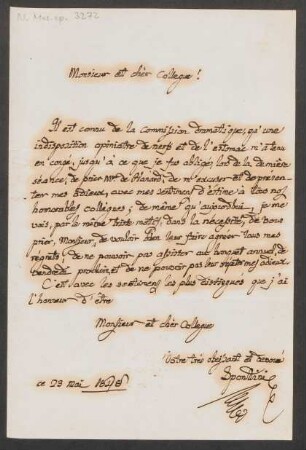 Monsieur et chèr Collegue!
Il est connu de la Commission dramatique, qu'une
indisposition opiniatre de nerfs et de l'estomac m'a tenu
en congé, jusqu'à ce que je fus obligé, lors de la dernière
séance, de prier Mr. de Planard, de m'excuser et de presen-
ter mes adieux, avec mes sentimens d'estime à tous nos
honorables collègues, de même qu'aujourdhui je me
vois, par le même triste motif, dans la necessité, de vous
prier, Monsieur, de vouloir bien leur faire agréer tous mes
regrets, de ne pouvoir pas assister au banquet annuel de
vendredi prochain, et de ne pouvoir pas leur mes adieux.
C'est avec les sentimens les plus distingués que j'ai
l'honneur d'être
Monsieur et chèr Collegue
Votre très obeissant et devoué
Spontini
ce 23 mai 1848